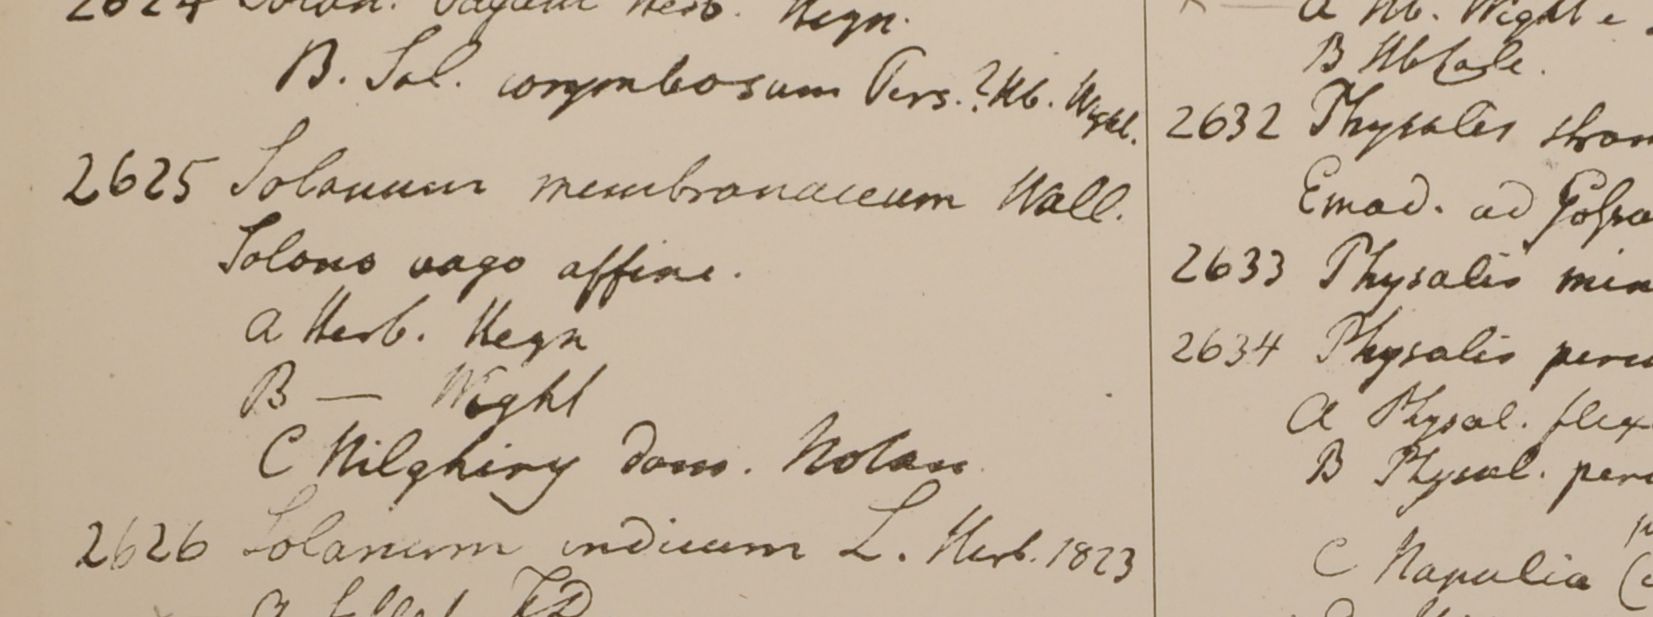 2624 Solan. vagum Herb. Heyn.
B. Sol. corymbosum Pers.? Hb. Wight.
2625 Solanum membranaceum Wall.
Solano vago affine.
a Herb. Heyn
B — Wight
C Nilghiry Dom. Nolan
2626 Solanum indicum L. Herb. 1823
a Hb. Wight e
B Hb
2632 Physalis
Emad. ad
2633 Physalis min
2634 Physalis peru
a Physal. flex
B Physal. peru
C Napalia